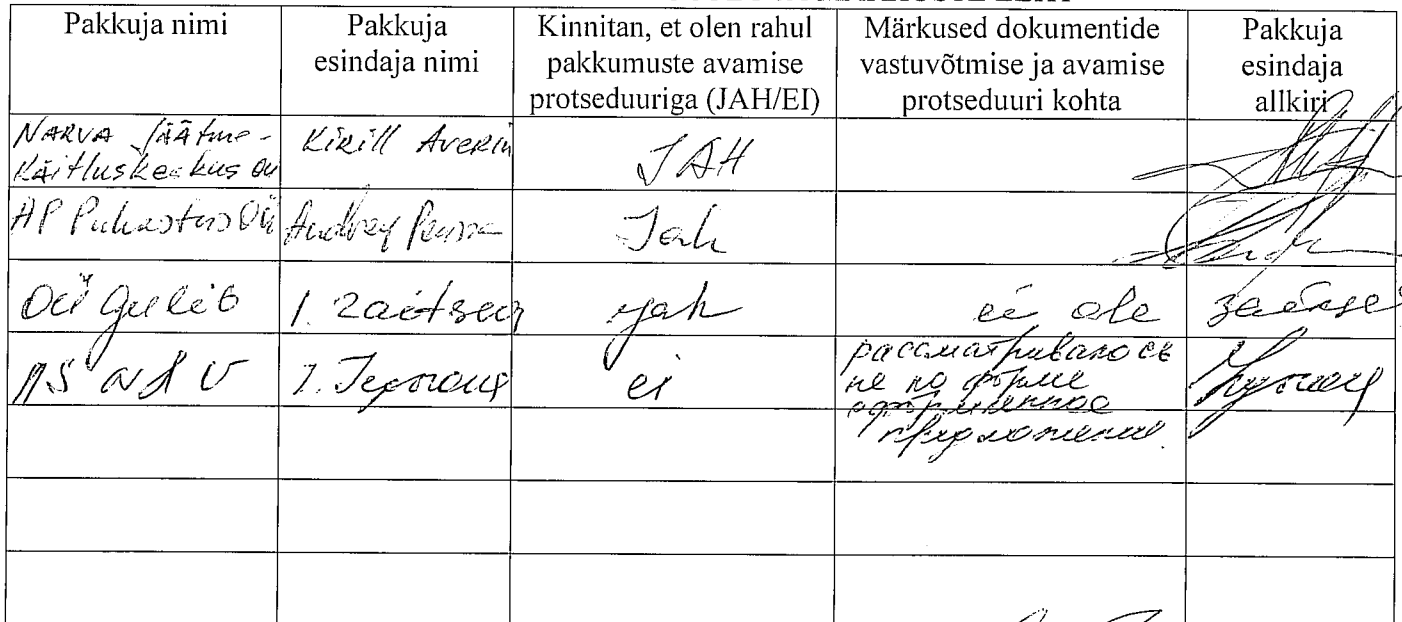 Pakkuja nimi
Pakkuja
esindaja nimi
Kinnitan, et olen rahul
pakkumuste avamise
protseduuriga (JAH/EI)
Märkused dokumentide
vastuvõtmise ja avamise
protseduuri kohta
Pakkuja
esindaja
allkiri
NARVA JÄÄTME-
KÄITLUSKESKUS OÜ
Kirill Averin
JAH
AP Puhastus OÜ
Andrey
Jah
OÜ
I. Zaitsev
jah
ei ole
AS
ei
рассматривалось
не по форме
оформленное
предложение.